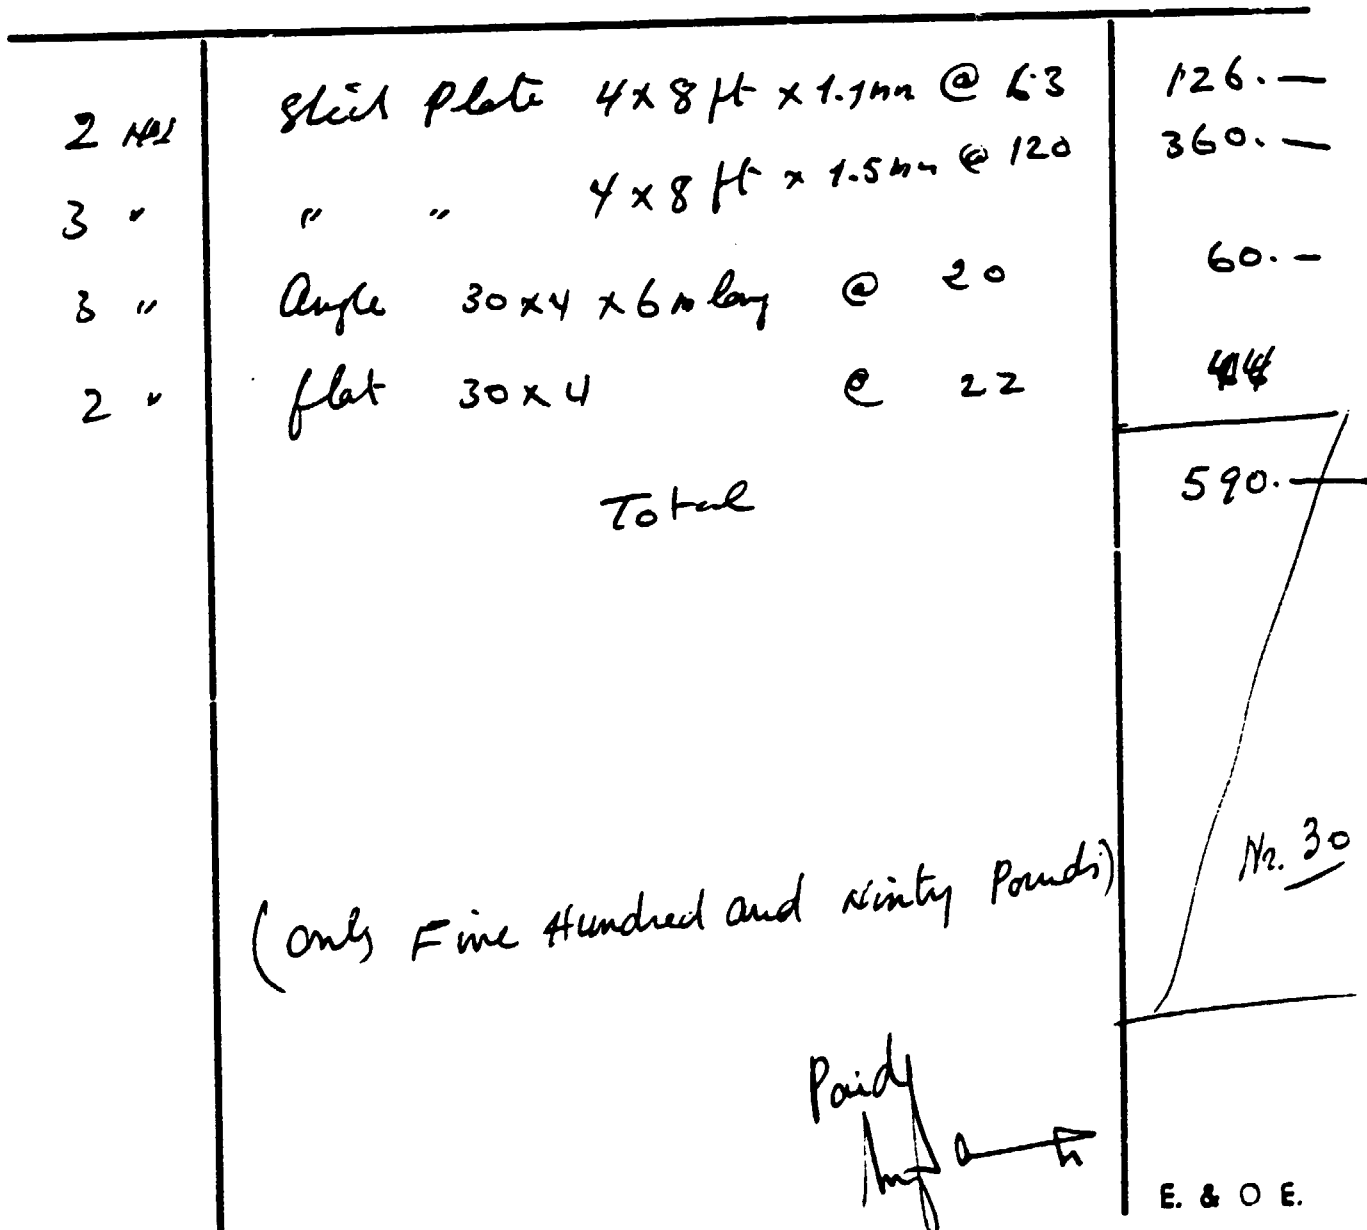 2 Nos Steel Plate 4 x 8 ft x 1.1mm @ 63 126.—
3 " " " 4 x 8 ft x 1.5mm @ 120 360.—
3 " Angle 30x4 x 6m long @ 20 60.—
2 " flat 30x4 @ 22 44
Total 590.—
Nr. 30
(only Five Hundred and Ninty Pounds)
Paid
E. & O E.